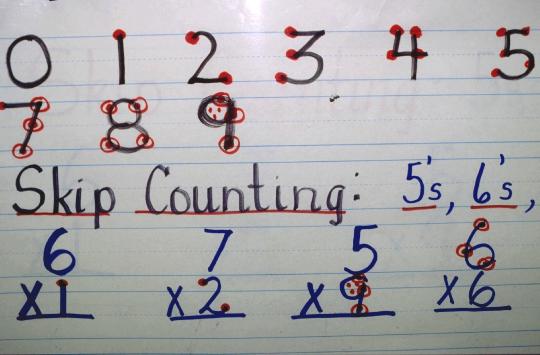 0 1 2 3 4 5
7 8 9
Skip Counting: 5's, 6's,
6 7 5 6
x1 x2 x9 x6